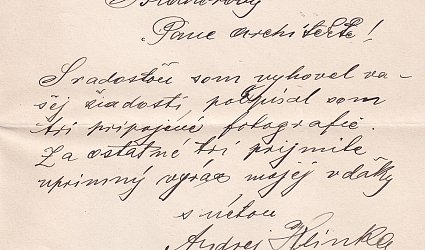 Pane architekte!
S radosťou som vyhovel va-
šej žiadosti, podpísal som
tri pripojené fotografie.
Za ostatné tri prijmite
úprimný výraz mojej vďaky
s úctou
Andrej Hlinka